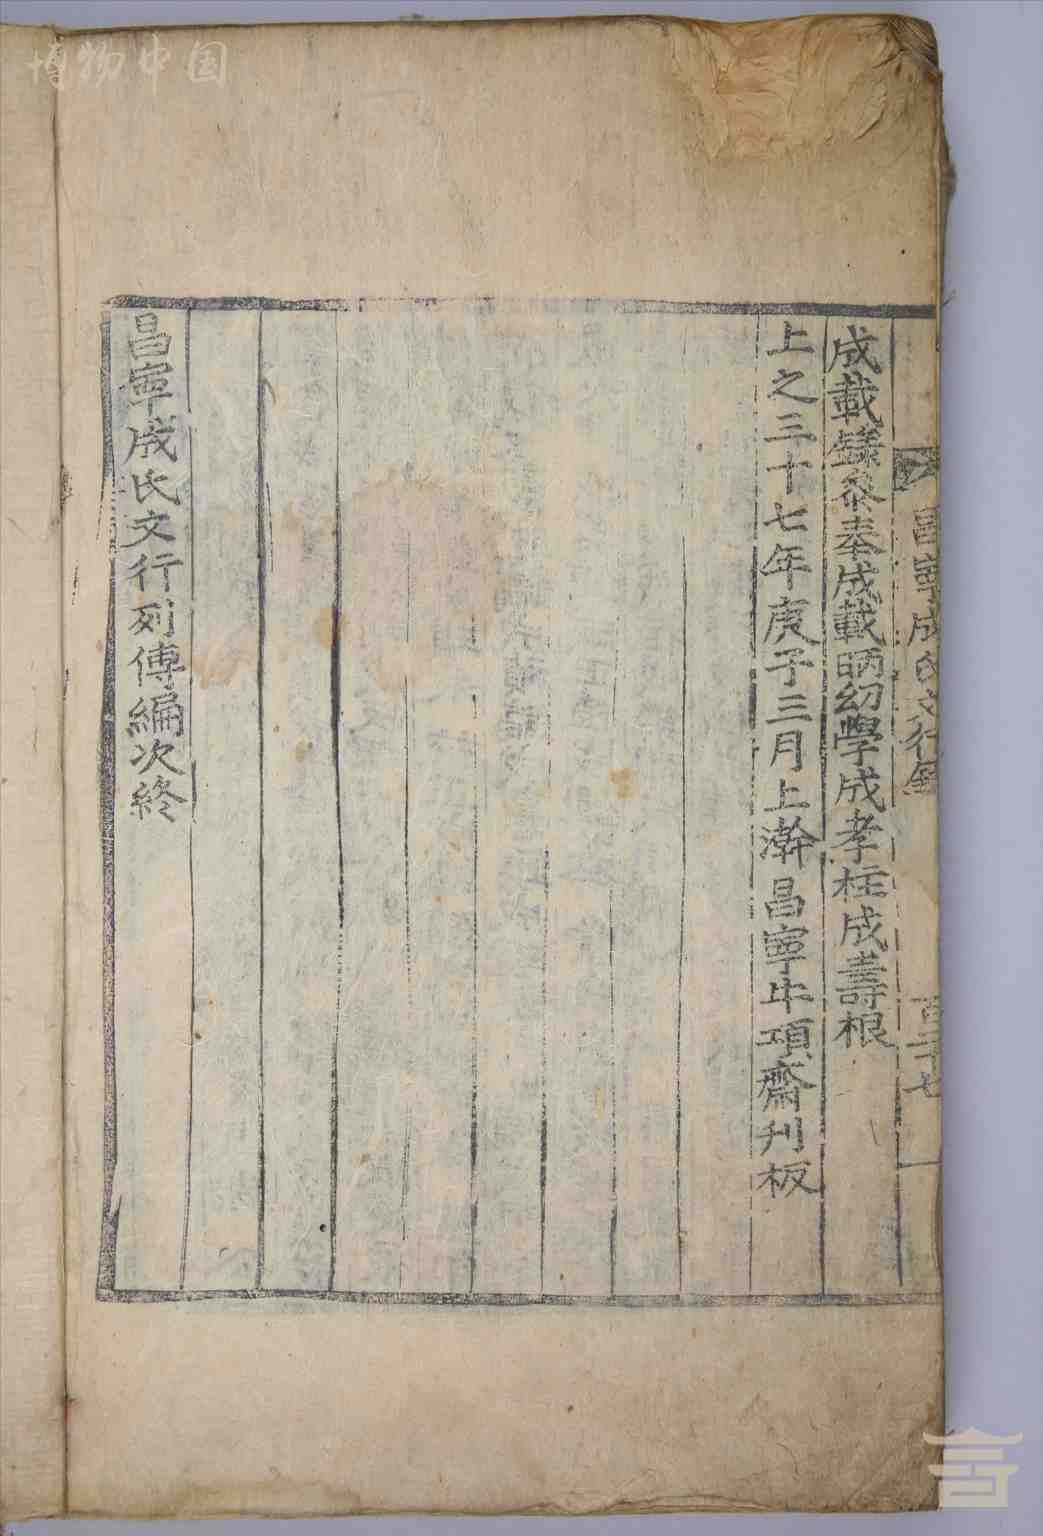 博物中国
昌寧成氏文行錄 百二十七
成載叅奉成載昞㓜學成孝柱成壽根
上之三十七年庚子三月上澣昌寧牛項齋刋板
昌寧成氏文行列傳編次終